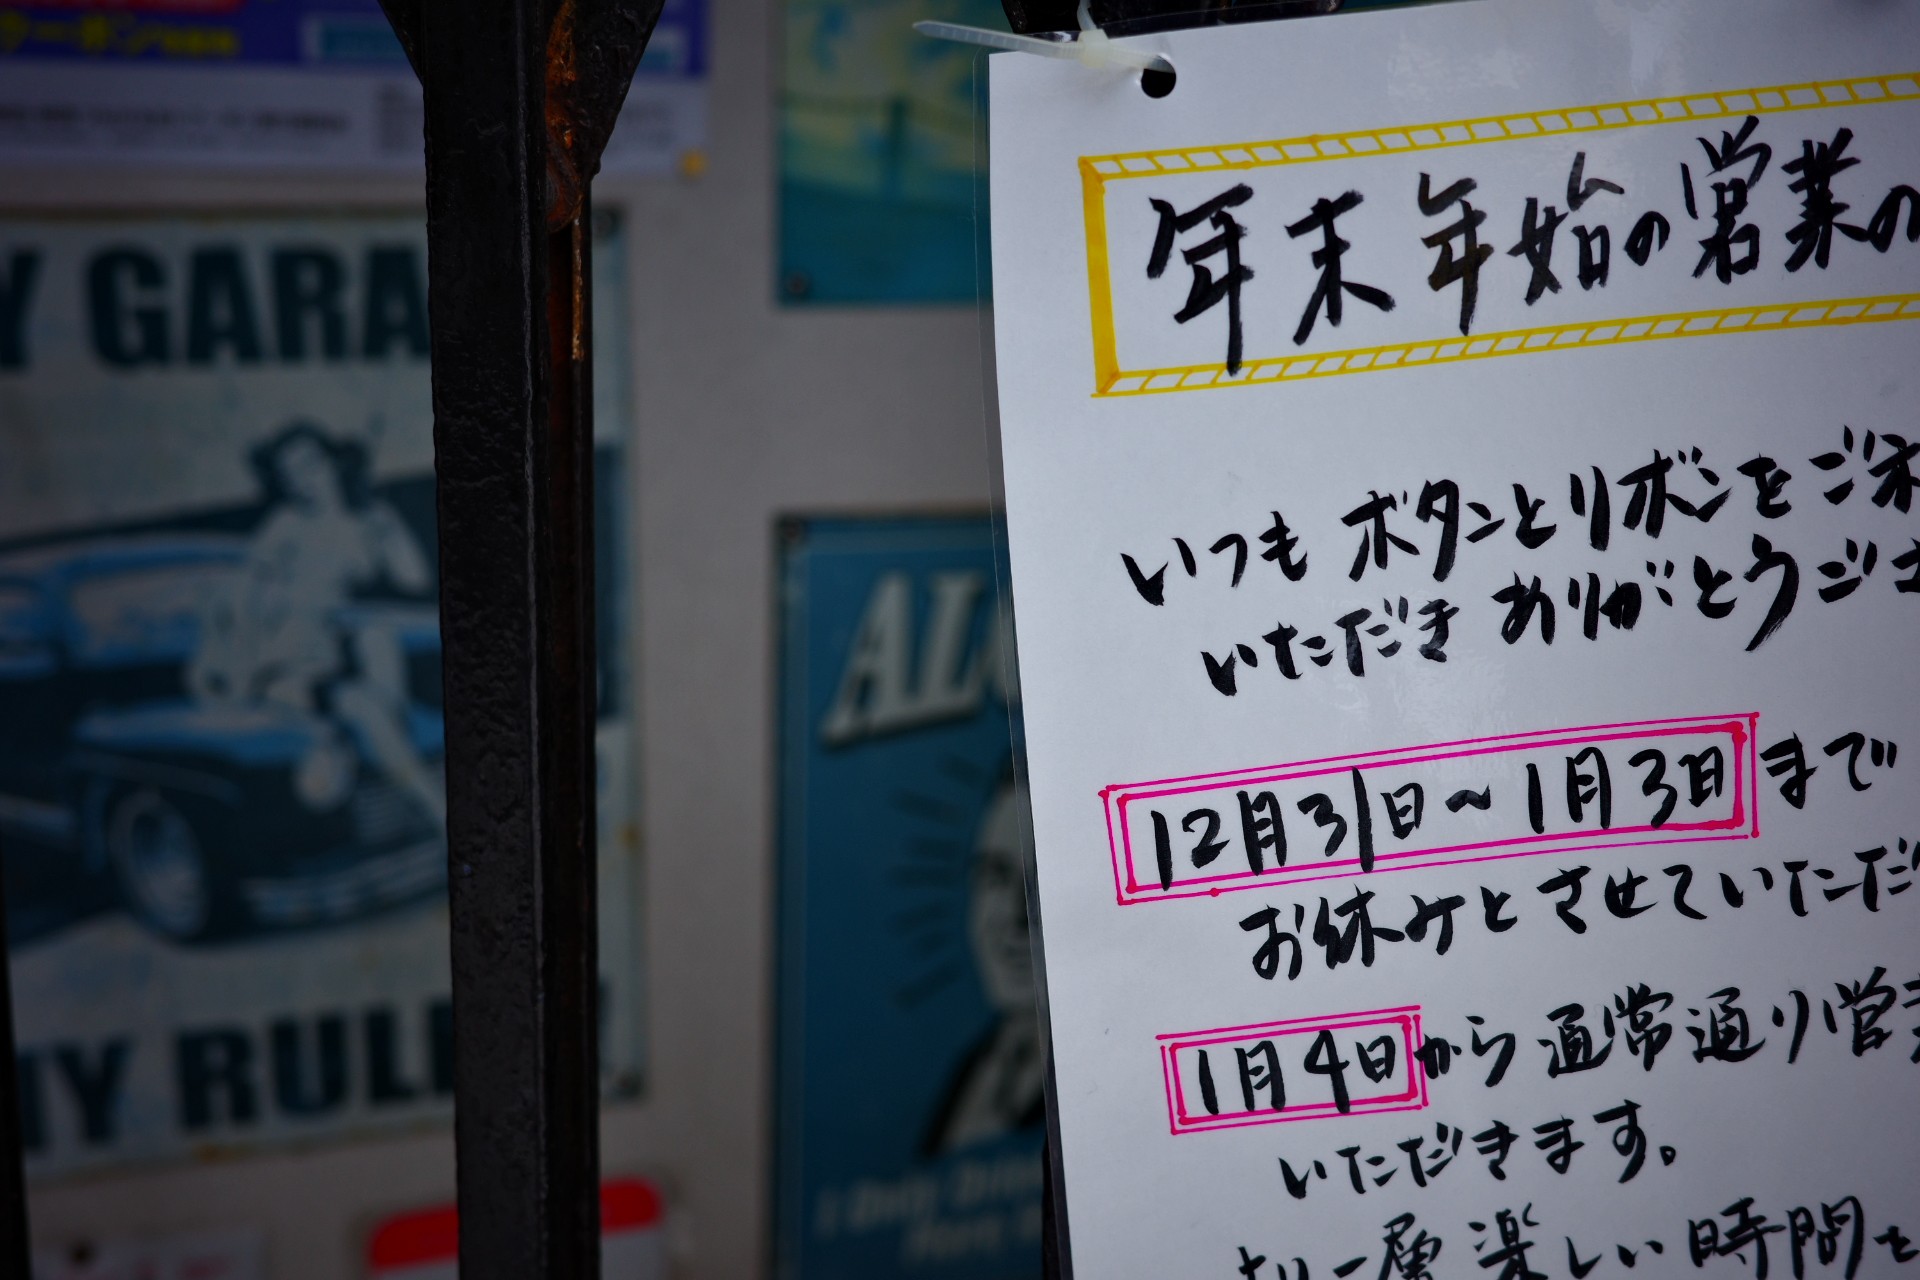 年末年始の営業の
いつもボタンとリボンをご
いただきありがとうござ
12月31日～1月3日まで
お休みとさせていただ
1月4日から通常通り営業
いただきます。
より一層楽しい時間を
Y GARA
MY RUL
AL
I Only Drin